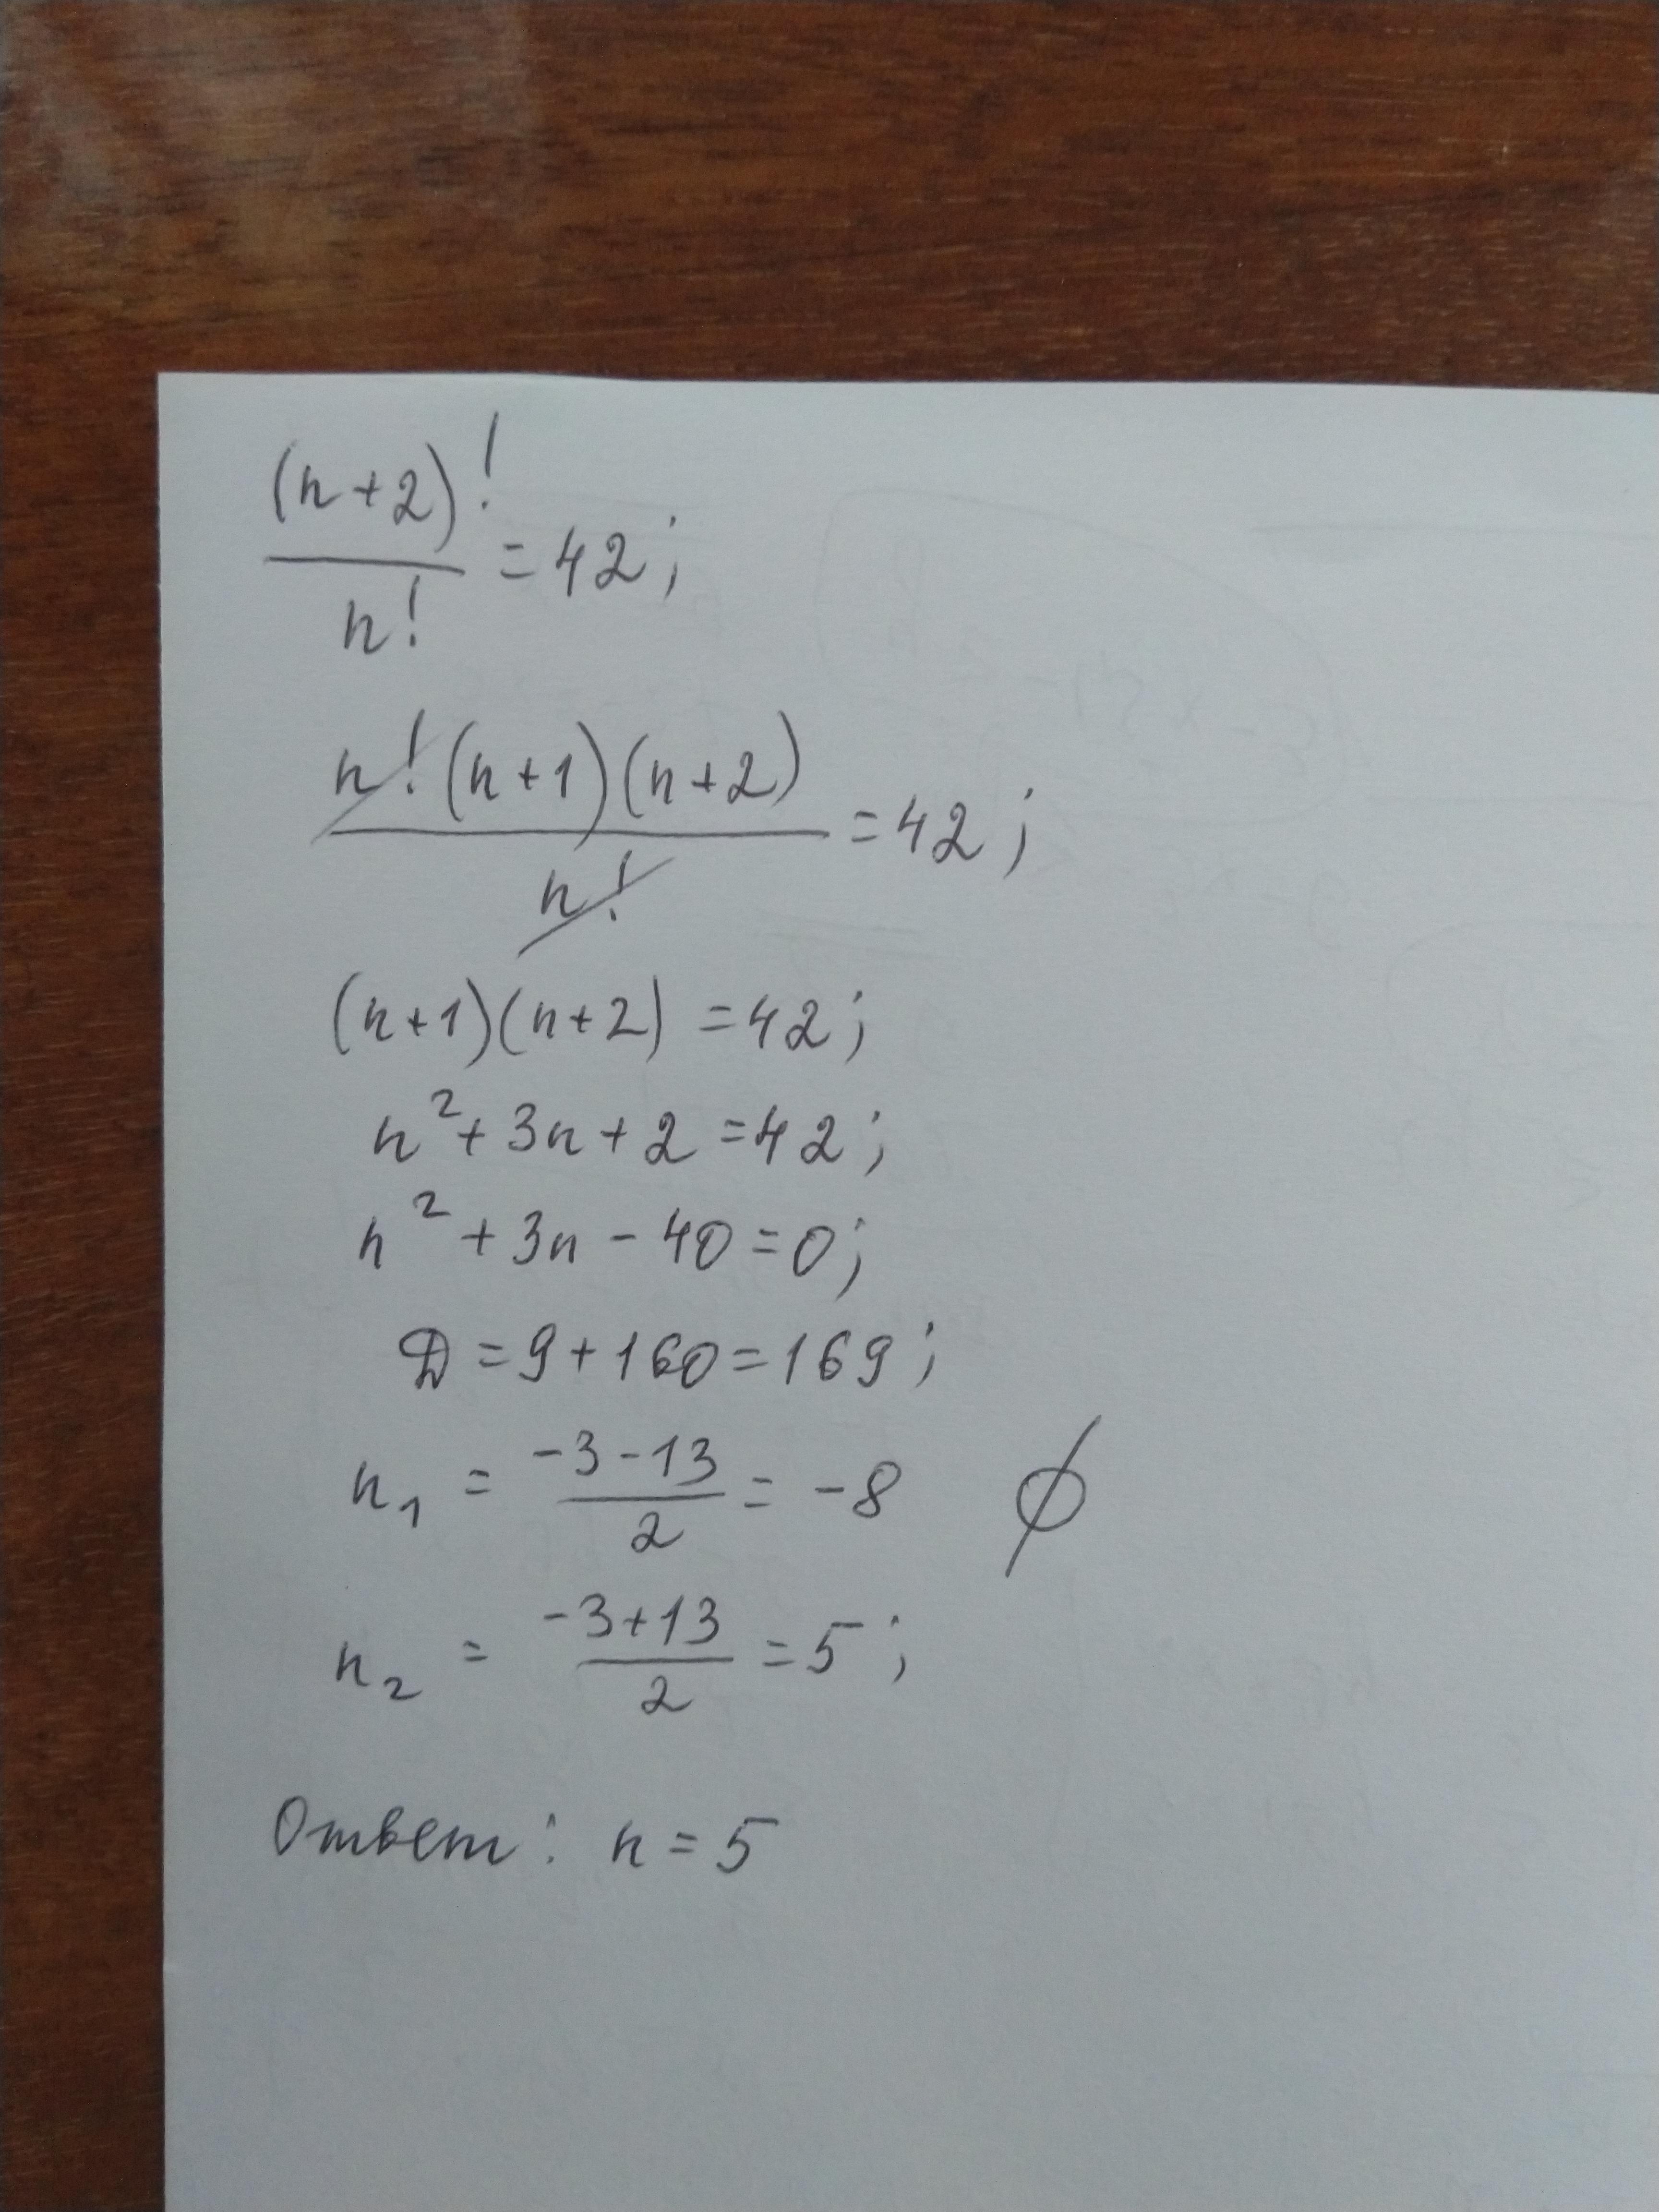 (n+2)!
/ n! = 42;
n!(n+1)(n+2)
/ n! = 42;
(n+1)(n+2) = 42;
n² + 3n + 2 = 42;
n² + 3n - 40 = 0;
D = 9 + 160 = 169;
n₁ = (-3-13)/2 = -8 ∅
n₂ = (-3+13)/2 = 5;
Ответ: n = 5